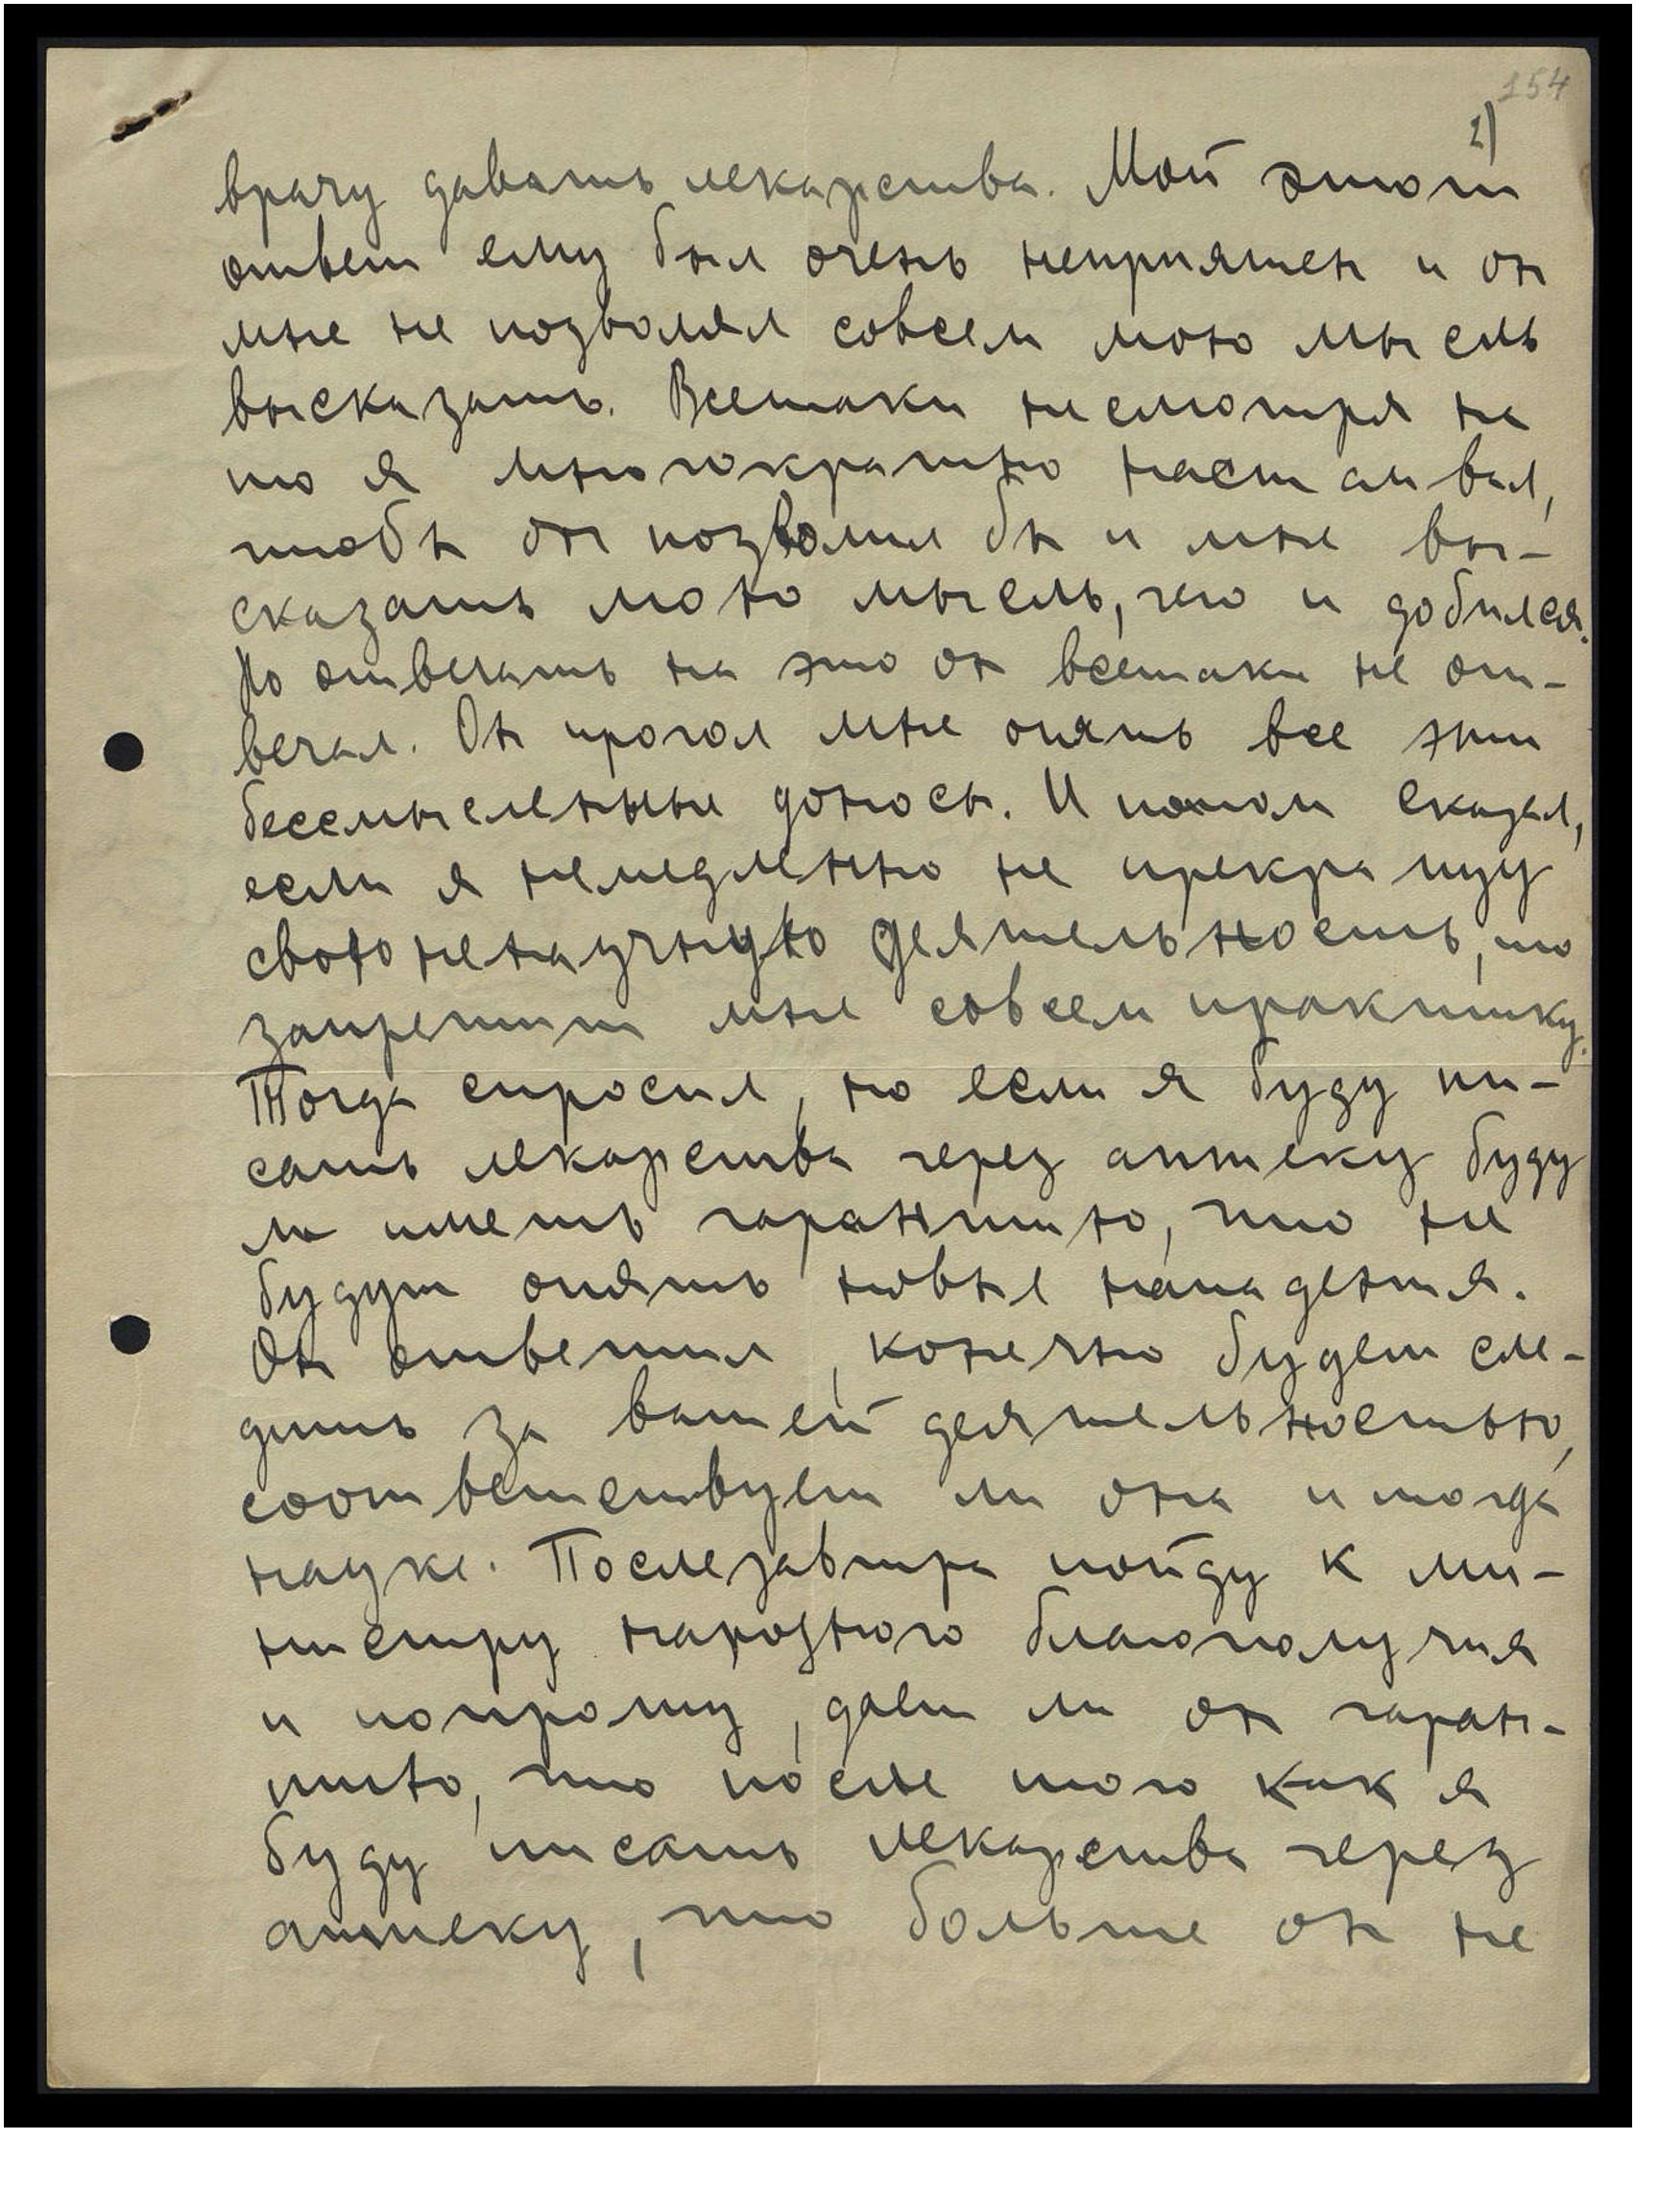 154
2)
врачу давать лекарства. Мой этот
ответ ему был очень неприятен и он
мне не позволял совсем мою мысль
высказать. Всетаки несмотря на
то я многократно настаивал,
чтобы он позволил бы и мне вы-
сказать мою мысль, чего и добился.
Но отвечать на это он всетаки не от-
вечал. Он прочол мне опять все эти
бессмысленные доносы. И потом сказал,
если я немедленно не прекращу
свою ненаучную деятельность, то
запретит мне совсем практику.
Тогда спросил, но если я буду пи-
сать лекарства через аптеку буду
ли иметь гарантию, что не
будут опять новые нападения.
Он ответил, конечно будем сле-
дить за вашей деятельностью,
соответствует ли она и тогда
науке. Послезавтра пойду к ми-
нистру народного благополучия
и попрошу, даст ли он гаран-
тию, что после того как я
буду писать лекарства через
аптеку, что больше он не